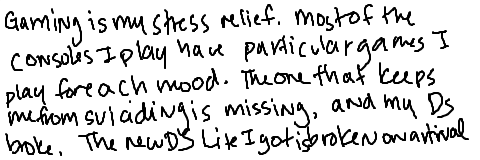 Gaming is my stress relief. Most of the
consoles I play have particular games I
play for each mood. The one that keeps
me from suiciding is missing, and my DS
broke. The new DS Lite I got is broken on arrival